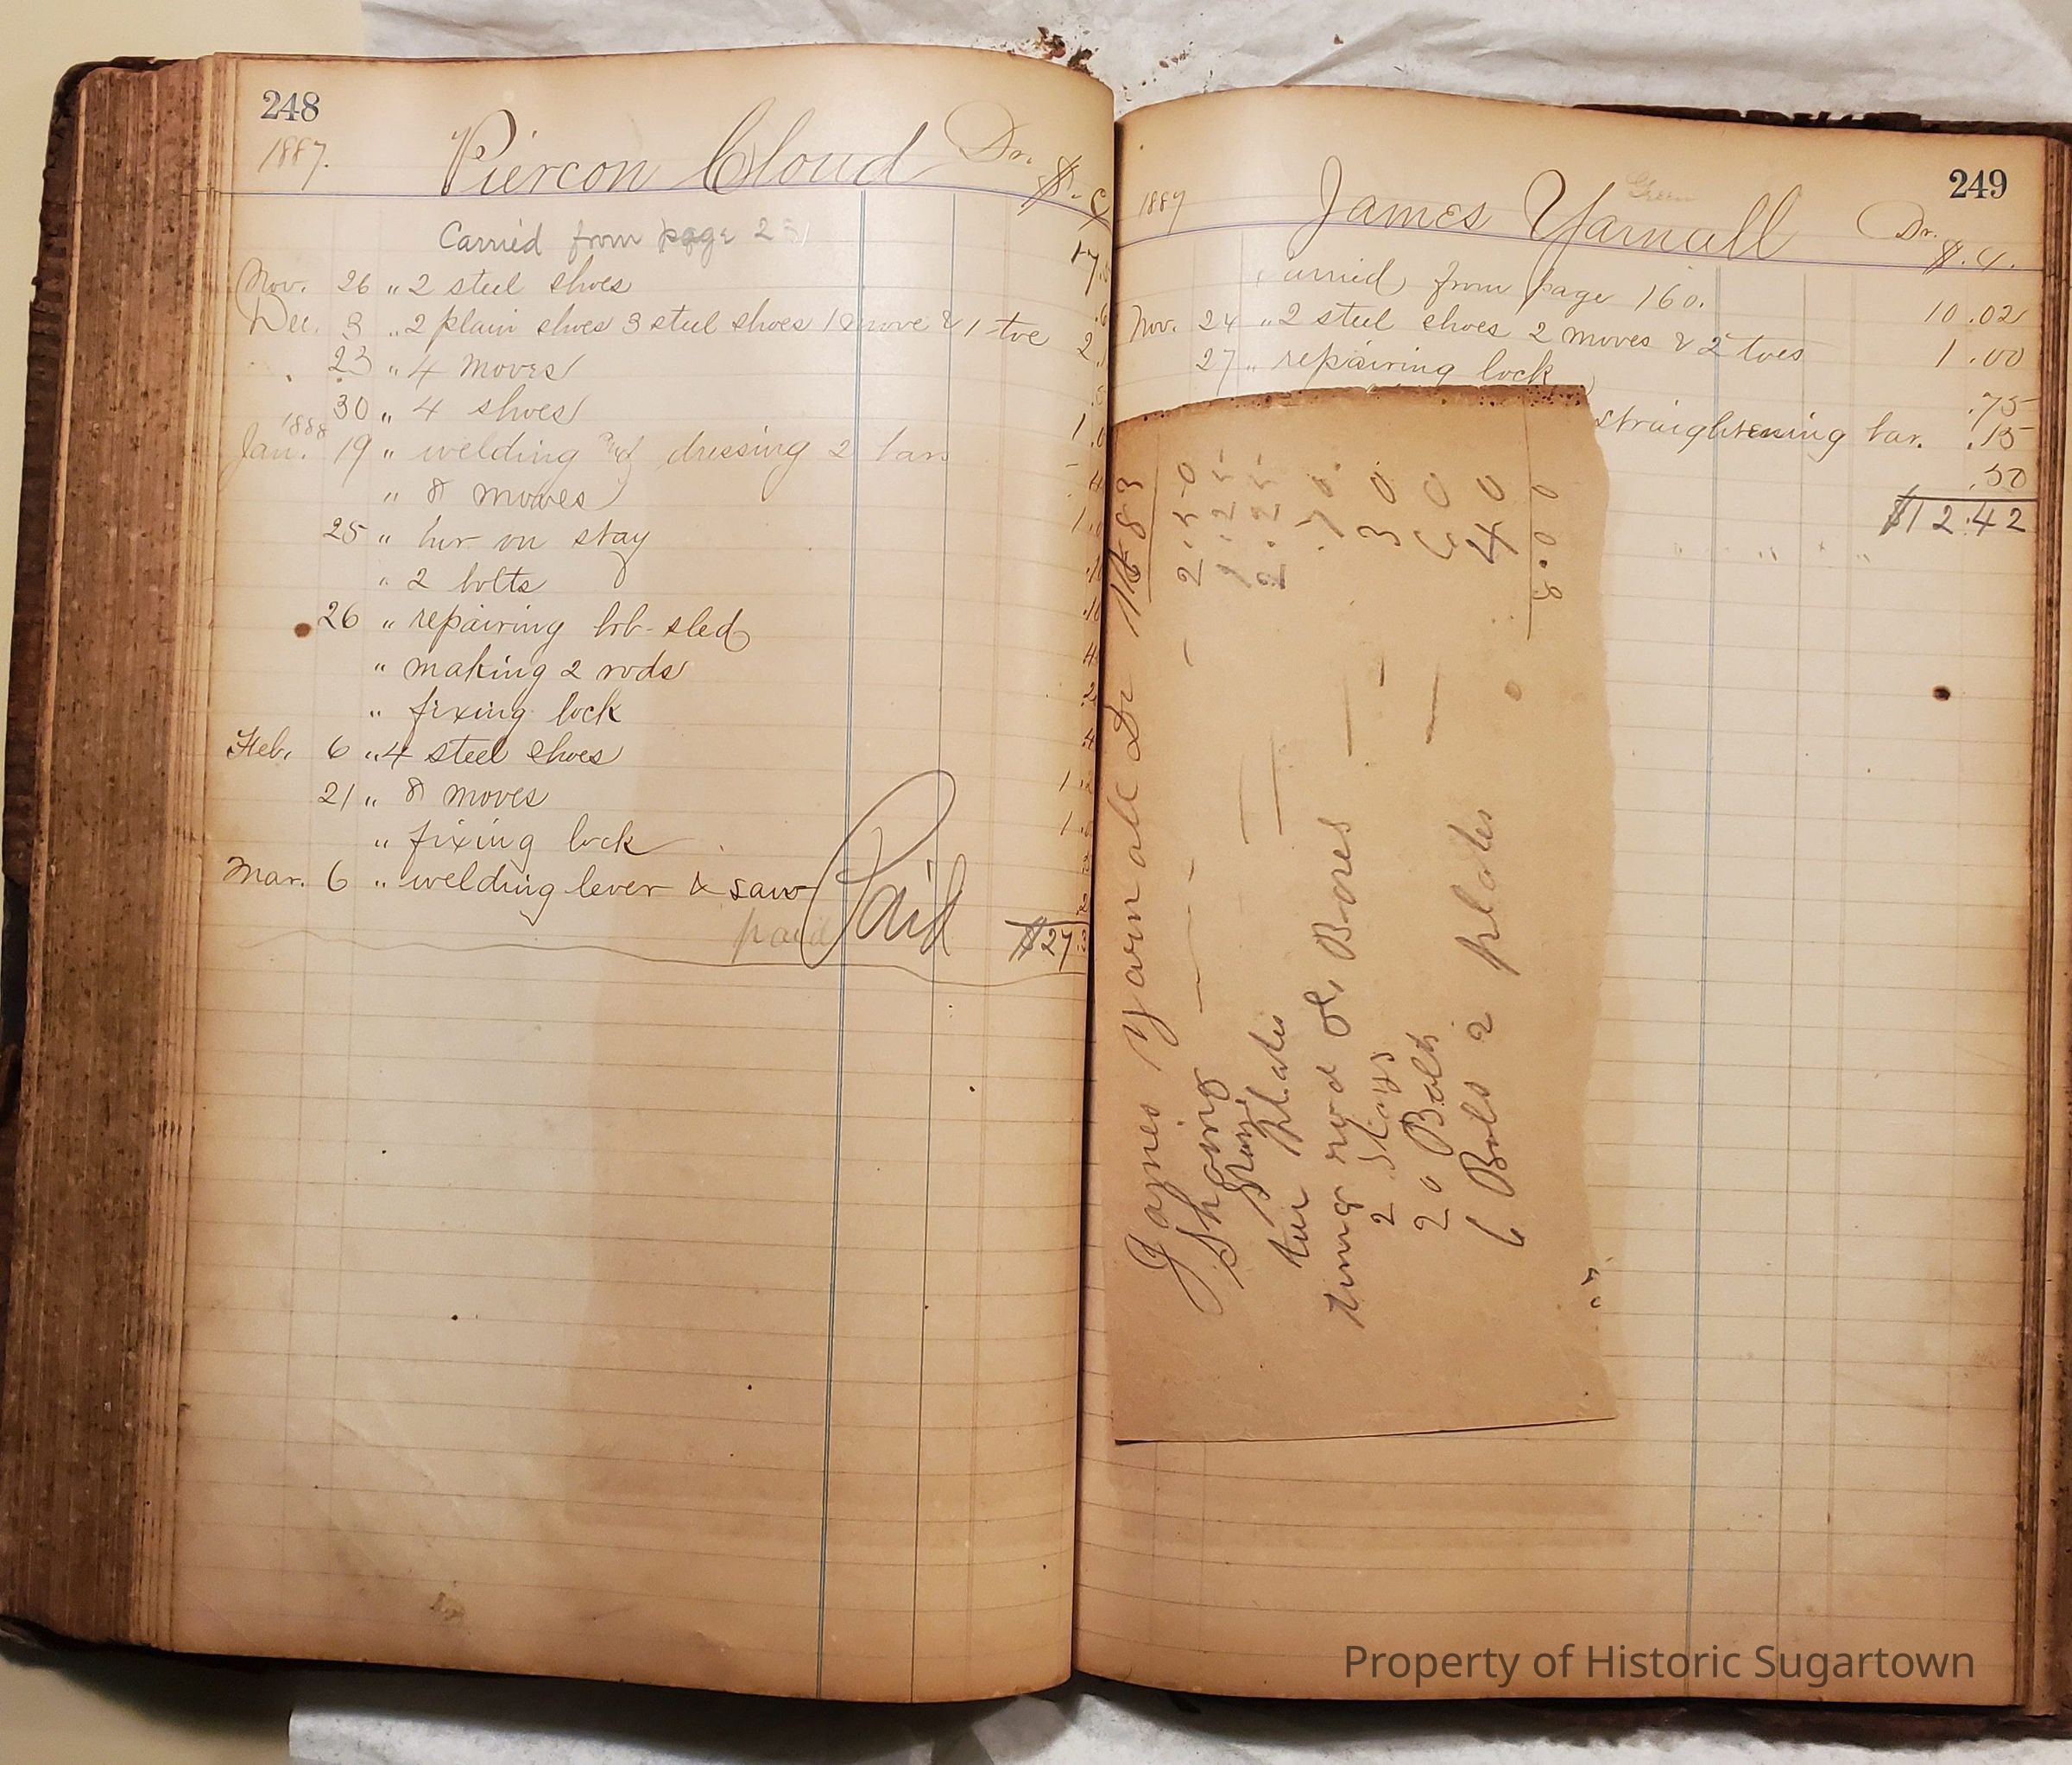 248
1887.
Piercon Cloud Dr.
$. c
Carried from page 2
17
Nov. 26 " 2 steel shoes
Dec. 3 " 2 plain shoes 3 steel shoes 1 move & 1 toe 2.
23 " 4 moves
30 " 4 shoes 1.0
1888
Jan. 19 " welding and dressing 2 bars
" 8 moves 1.
25 " bur on stay
" 2 bolts
26 " repairing bob-sled
" making 2 rods
" fixing lock
Feb. 6 " 4 steel shoes 1
21 " 8 moves 1
" fixing lock
Mar. 6 " welding lever & saw
paid Paid $27
249
1887
James Yarnall Dr.
Green
$. c.
Carried from page 160. 10.02
Nov. 24 " 2 steel shoes 2 moves & 2 toes 1.00
27 " repairing lock .75
straightening bar. .15
.50
$12.42
James Yarnall Dr 1883
Shoing 2.50
2.25
plates 2.25
rod & Boxes .70
2 Stays 30
20 Bolts 60
6 Bolts 2 plates 40
8.00
Property of Historic Sugartown